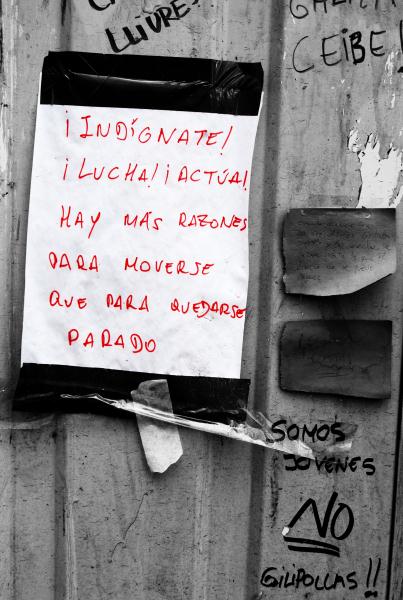 LLIURE
CEIBE!
¡INDÍGNATE!
¡LUCHA! ¡ACTÚA!
HAY MÁS RAZONES
PARA MOVERSE
QUE PARA QUEDARSE
PARADO
SOMOS
JOVENES
NO
GILIPOLLAS!!